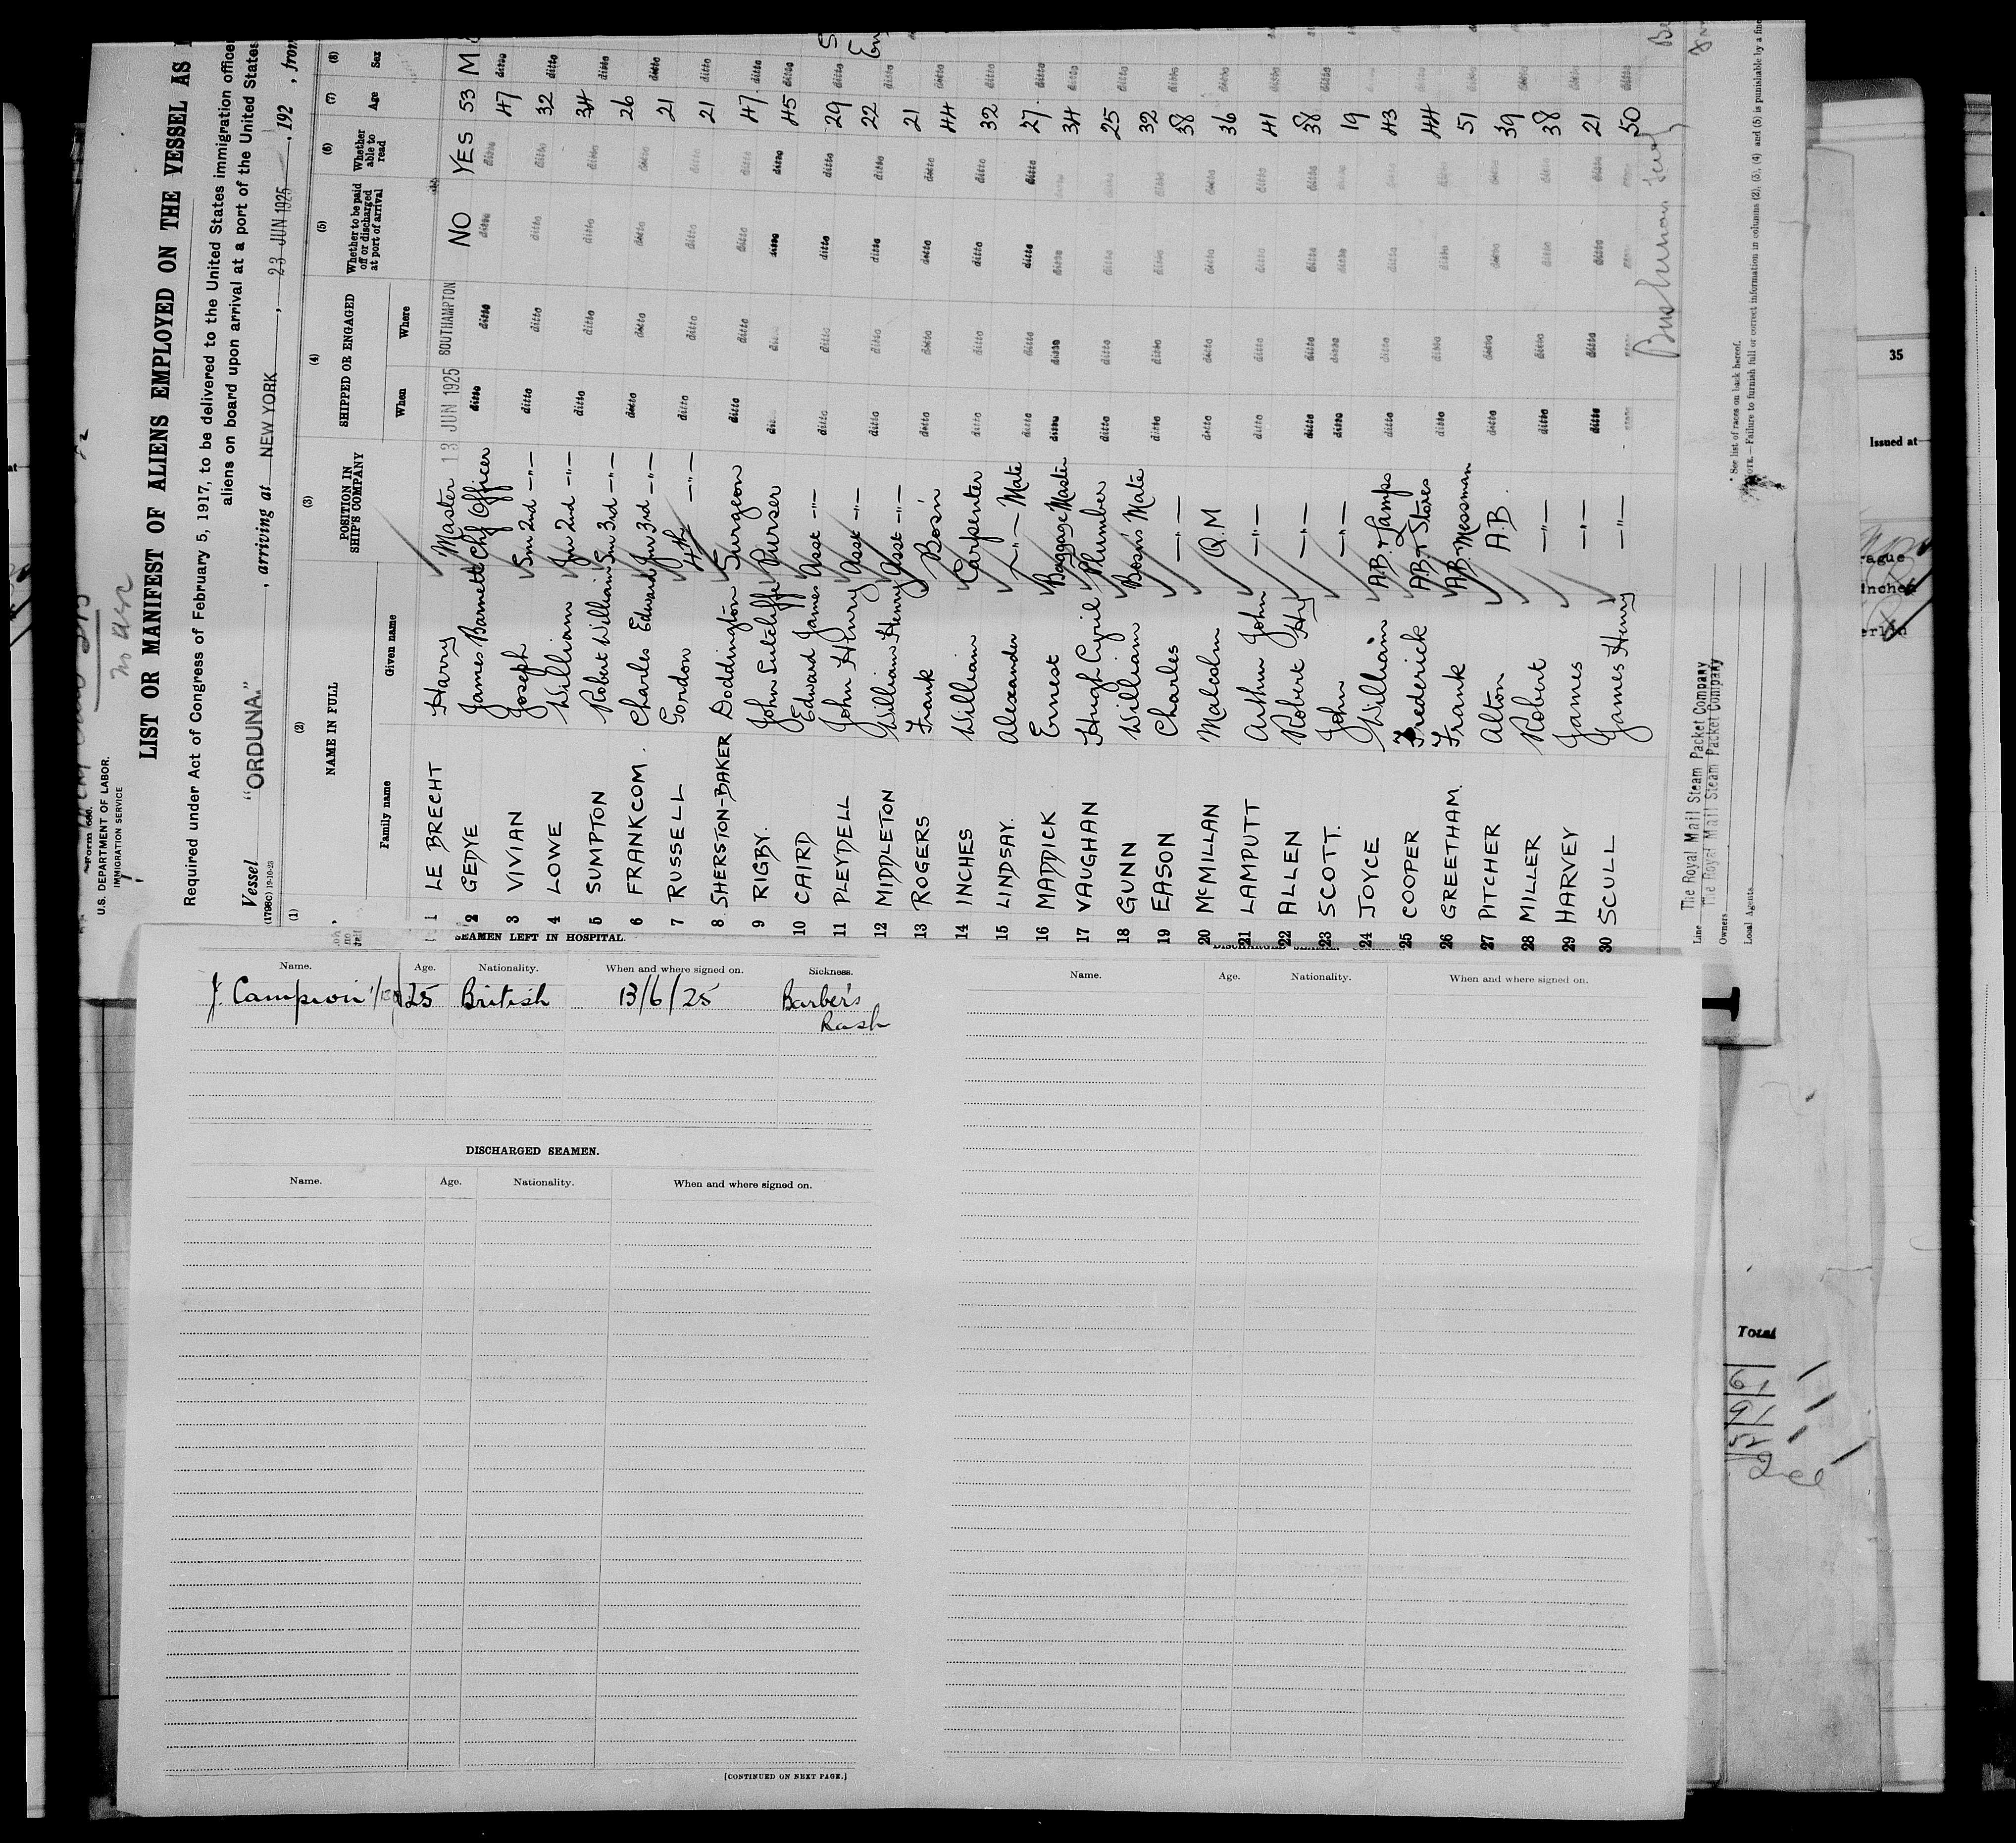 Form 680.
U.S. DEPARTMENT OF LABOR,
IMMIGRATION SERVICE
LIST OR MANIFEST OF ALIENS EMPLOYED ON THE VESSEL AS
Required under Act of Congress of February 5, 1917, to be delivered to the United States immigration officer
aliens on board upon arrival at a port of the United States
Vessel "ORDUNA." , arriving at NEW YORK , 23 JUN 1925 , 192 , from
(1) (2) (3) (4) (5) (6) (7) (8)
NAME IN FULL POSITION IN SHIP'S COMPANY SHIPPED OR ENGAGED Whether to be paid off or discharged at port of arrival Whether able to read Age Sex
Family name Given name When Where
1 LE BRECHT Harry Master 13 JUN 1925 SOUTHAMPTON NO YES 53 M
2 GEDYE James Barnett Chf Officer ditto ditto ditto ditto 47 ditto
3 VIVIAN Joseph Snr 2nd -"- ditto ditto ditto ditto 32 ditto
4 LOWE William Jnr 2nd -"- ditto ditto ditto ditto 34 ditto
5 SUMPTON Robert William Snr 3rd -"- ditto ditto ditto ditto 26 ditto
6 FRANKCOM. Charles Edward Jnr 3rd -"- ditto ditto ditto ditto 21 ditto
7 RUSSELL Gordon 4th -"- ditto ditto ditto ditto 21 ditto
8 SHERSTON-BAKER Doddington Surgeon ditto ditto ditto ditto 47 ditto
9 RIGBY. John Sutcliffe Purser ditto ditto ditto ditto 45 ditto
10 CAIRD Edward James Asst -"- ditto ditto ditto ditto 29 ditto
11 PLEYDELL John Henry Asst -"- ditto ditto ditto ditto 22 ditto
12 MIDDLETON William Henry Asst -"- ditto ditto ditto ditto 21 ditto
13 ROGERS Frank Bos'n ditto ditto ditto ditto 44 ditto
14 INCHES William Carpenter ditto ditto ditto ditto 32 ditto
15 LINDSAY. Alexander -"- Mate ditto ditto ditto ditto 27 ditto
16 MADDICK Ernest Baggage Master ditto ditto ditto ditto 34 ditto
17 VAUGHAN Hugh Cyril Plumber ditto ditto ditto ditto 25 ditto
18 GUNN William Bosn's Mate ditto ditto ditto ditto 32 ditto
19 EASON Charles -"- ditto ditto ditto ditto 38 ditto
20 McMILLAN Malcolm Q.M ditto ditto ditto ditto 36 ditto
21 LAMPUTT Arthur John -"- ditto ditto ditto ditto 41 ditto
22 ALLEN Robert Hy -"- ditto ditto ditto ditto 38 ditto
23 SCOTT. John -"- ditto ditto ditto ditto 19 ditto
24 JOYCE William A.B. & Lamps ditto ditto ditto ditto 43 ditto
25 COOPER Frederick A.B. & Stores ditto ditto ditto ditto 44 ditto
26 GREETHAM. Frank A.B. Messman ditto ditto ditto ditto 51 ditto
27 PITCHER Alton A.B. ditto ditto ditto ditto 39 ditto
28 MILLER Robert -"- ditto ditto ditto ditto 38 ditto
29 HARVEY James -"- ditto ditto ditto ditto 21 ditto
30 SCULL James Henry -"- 50 ditto
Line The Royal Mail Steam Packet Company
Owners The Royal Mail Steam Packet Company
Local Agents
See list of races on back hereof.
NOTE.—Failure to furnish full or correct information in columns (2), (3), (4) and (5) is punishable by a fine
SEAMEN LEFT IN HOSPITAL.
Name. Age. Nationality. When and where signed on. Sickness.
J. Campion 25 British 13/6/25 Barber's
Rash
DISCHARGED SEAMEN.
Name. Age. Nationality. When and where signed on.
[CONTINUED ON NEXT PAGE.]
Name. Age. Nationality. When and where signed on.
35
Issued at
Total